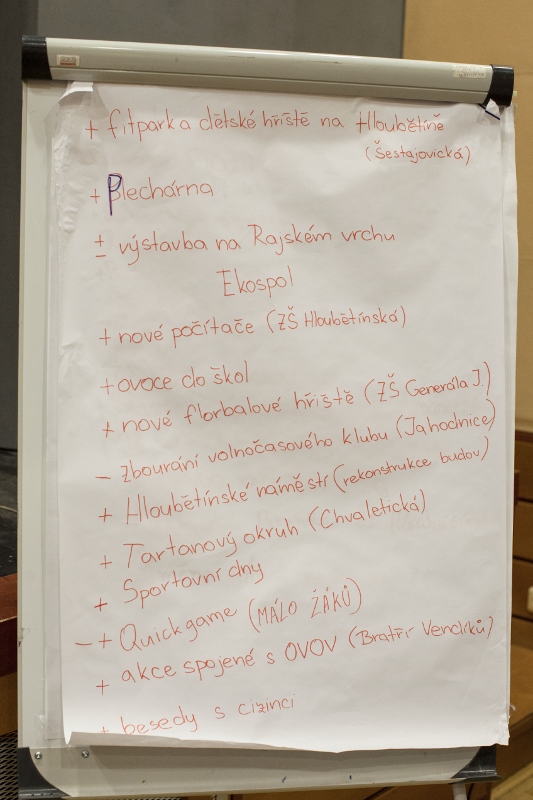 + fitpark a dětské hřiště na Hloubětíně
(Šestajovická)
+ Plechárna
± výstavba na Rajském vrchu
Ekospol
+ nové počítače (ZŠ Hloubětínská)
+ ovoce do škol
+ nové florbalové hřiště (ZŠ Generála J.)
- zbourání volnočasového klubu (Jahodnice)
+ Hloubětínské náměstí (rekonstrukce budov)
+ Tartanový okruh (Chvaletická)
+ Sportovní dny
- + Quickgame (MÁLO ŽÁKŮ)
+ akce spojené s OVOV (Bratří Venclíků)
+ besedy s cizinci